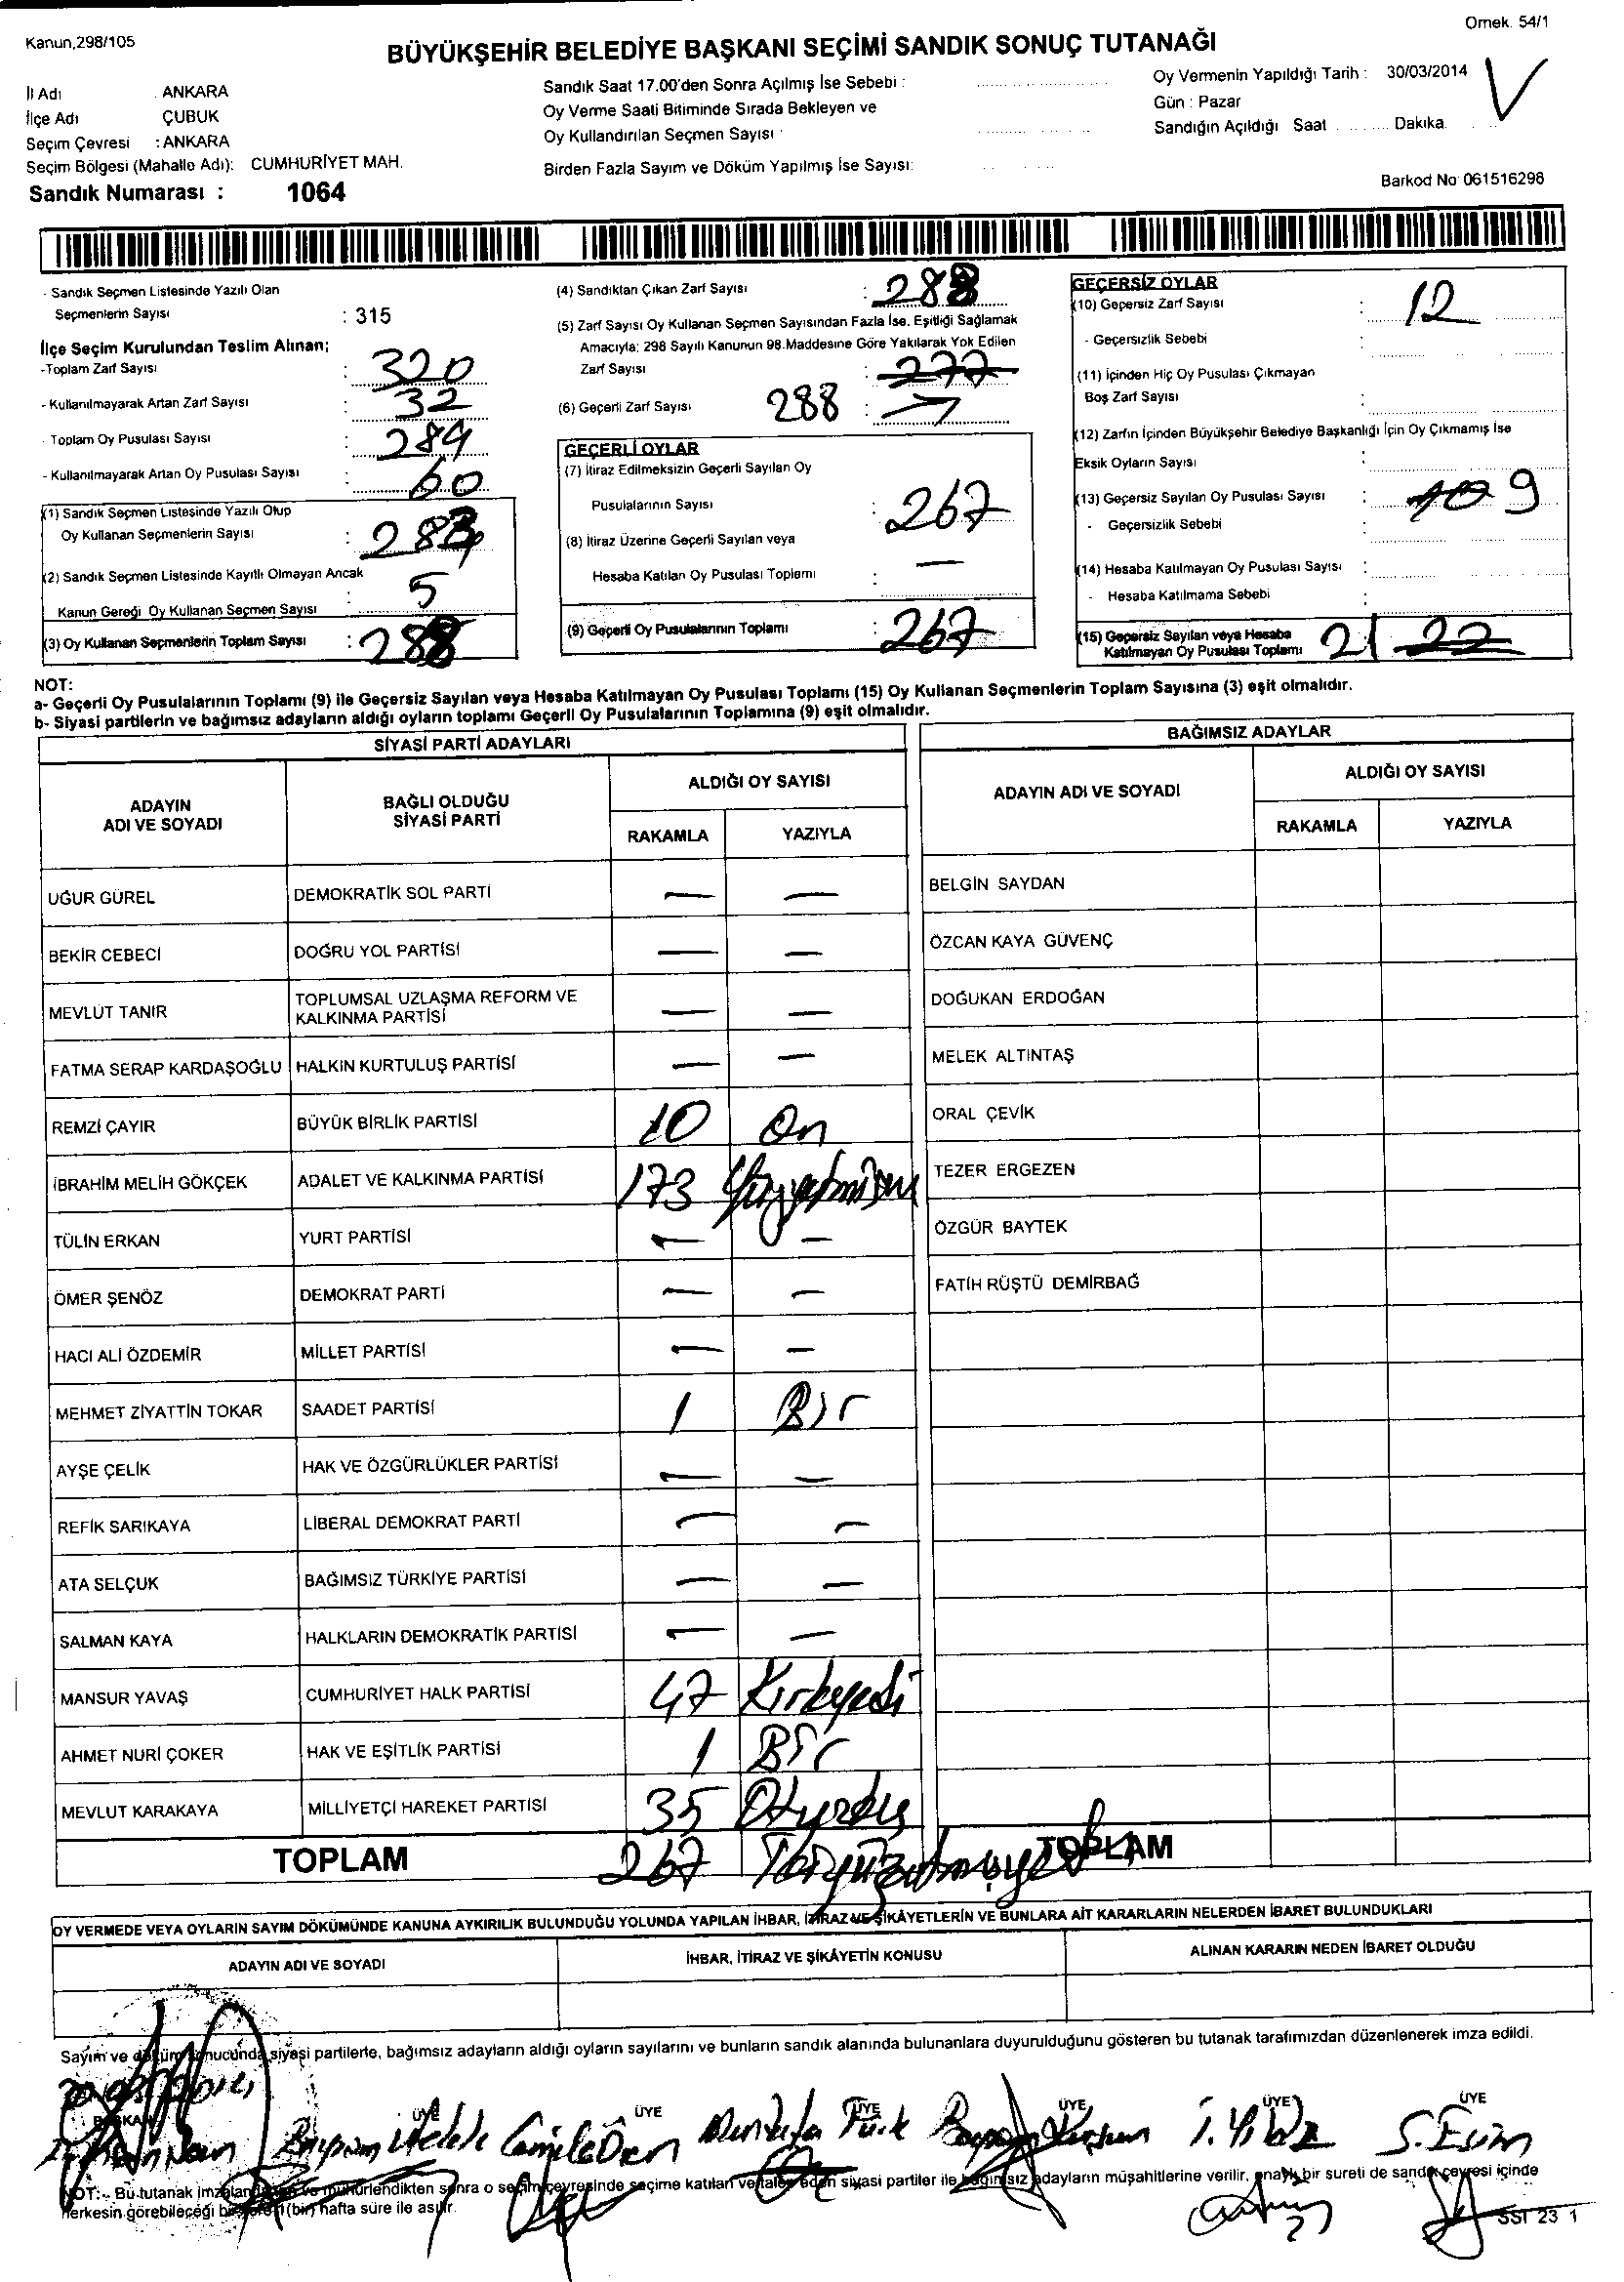 Kanun,298/105
Örnek. 54/1
BÜYÜKŞEHİR BELEDİYE BAŞKANI SEÇİMİ SANDIK SONUÇ TUTANAĞI
İl Adı ANKARA
İlçe Adı ÇUBUK
Seçim Çevresi : ANKARA
Seçim Bölgesi (Mahalle Adı): CUMHURİYET MAH.
Sandık Numarası : 1064
Sandık Saat 17.00'den Sonra Açılmış İse Sebebi :
Oy Verme Saati Bitiminde Sırada Bekleyen ve
Oy Kullandırılan Seçmen Sayısı
Birden Fazla Sayım ve Döküm Yapılmış İse Sayısı:
Oy Vermenin Yapıldığı Tarih : 30/03/2014
Gün : Pazar
Sandığın Açıldığı Saat Dakika
Barkod No 061516298
- Sandık Seçmen Listesinde Yazılı Olan
Seçmenlerin Sayısı : 315
İlçe Seçim Kurulundan Teslim Alınan;
-Toplam Zarf Sayısı : 320
- Kullanılmayarak Artan Zarf Sayısı : 32
- Toplam Oy Pusulası Sayısı : 284
- Kullanılmayarak Artan Oy Pusulası Sayısı : 60
(1) Sandık Seçmen Listesinde Yazılı Olup
Oy Kullanan Seçmenlerin Sayısı : 283
(2) Sandık Seçmen Listesinde Kayıtlı Olmayan Ancak
Kanun Gereği Oy Kullanan Seçmen Sayısı : 5
(3) Oy Kullanan Seçmenlerin Toplam Sayısı : 288
(4) Sandıktan Çıkan Zarf Sayısı : 288
(5) Zarf Sayısı Oy Kullanan Seçmen Sayısından Fazla İse. Eşitliği Sağlamak
Amacıyla; 298 Sayılı Kanunun 98.Maddesine Göre Yakılarak Yok Edilen
Zarf Sayısı : 277
(6) Geçerli Zarf Sayısı 288 :
GEÇERLİ OYLAR
(7) İtiraz Edilmeksizin Geçerli Sayılan Oy
Pusulalarının Sayısı : 267
(8) İtiraz Üzerine Geçerli Sayılan veya
Hesaba Katılan Oy Pusulası Toplamı : —
(9) Geçerli Oy Pusulalarının Toplamı : 267
GEÇERSİZ OYLAR
(10) Geçersiz Zarf Sayısı : 12
- Geçersizlik Sebebi :
(11) İçinden Hiç Oy Pusulası Çıkmayan
Boş Zarf Sayısı :
(12) Zarfın İçinden Büyükşehir Belediye Başkanlığı İçin Oy Çıkmamış İse
Eksik Oyların Sayısı :
(13) Geçersiz Sayılan Oy Pusulası Sayısı : 10 9
- Geçersizlik Sebebi :
(14) Hesaba Katılmayan Oy Pusulası Sayısı :
- Hesaba Katılmama Sebebi :
(15) Geçersiz Sayılan veya Hesaba
Katılmayan Oy Pusulası Toplamı 21 22
NOT:
a- Geçerli Oy Pusulalarının Toplamı (9) ile Geçersiz Sayılan veya Hesaba Katılmayan Oy Pusulası Toplamı (15) Oy Kullanan Seçmenlerin Toplam Sayısına (3) eşit olmalıdır.
b- Siyasi partilerin ve bağımsız adayların aldığı oyların toplamı Geçerli Oy Pusulalarının Toplamına (9) eşit olmalıdır.
SİYASİ PARTİ ADAYLARI
ADAYIN ADI VE SOYADI BAĞLI OLDUĞU SİYASİ PARTİ ALDIĞI OY SAYISI
RAKAMLA YAZIYLA
UĞUR GÜREL DEMOKRATİK SOL PARTİ — —
BEKİR CEBECİ DOĞRU YOL PARTİSİ — —
MEVLÜT TANIR TOPLUMSAL UZLAŞMA REFORM VE KALKINMA PARTİSİ — —
FATMA SERAP KARDAŞOĞLU HALKIN KURTULUŞ PARTİSİ — —
REMZİ ÇAYIR BÜYÜK BİRLİK PARTİSİ 10 On
İBRAHİM MELİH GÖKÇEK ADALET VE KALKINMA PARTİSİ 173
TÜLİN ERKAN YURT PARTİSİ — —
ÖMER ŞENÖZ DEMOKRAT PARTİ — —
HACI ALİ ÖZDEMİR MİLLET PARTİSİ — —
MEHMET ZİYATTİN TOKAR SAADET PARTİSİ 1 Bir
AYŞE ÇELİK HAK VE ÖZGÜRLÜKLER PARTİSİ — —
REFİK SARIKAYA LİBERAL DEMOKRAT PARTİ — —
ATA SELÇUK BAĞIMSIZ TÜRKİYE PARTİSİ — —
SALMAN KAYA HALKLARIN DEMOKRATİK PARTİSİ — —
MANSUR YAVAŞ CUMHURİYET HALK PARTİSİ 47 Kırkyedi
AHMET NURİ ÇOKER HAK VE EŞİTLİK PARTİSİ 1 Bir
MEVLUT KARAKAYA MİLLİYETÇİ HAREKET PARTİSİ 35 Otuzbeş
TOPLAM 267
BAĞIMSIZ ADAYLAR
ADAYIN ADI VE SOYADI ALDIĞI OY SAYISI
RAKAMLA YAZIYLA
BELGİN SAYDAN
ÖZCAN KAYA GÜVENÇ
DOĞUKAN ERDOĞAN
MELEK ALTINTAŞ
ORAL ÇEVİK
TEZER ERGEZEN
ÖZGÜR BAYTEK
FATİH RÜŞTÜ DEMİRBAĞ
TOPLAM
OY VERMEDE VEYA OYLARIN SAYIM DÖKÜMÜNDE KANUNA AYKIRILIK BULUNDUĞU YOLUNDA YAPILAN İHBAR, İTİRAZ VE ŞİKÂYETLERİN VE BUNLARA AİT KARARLARIN NELERDEN İBARET BULUNDUKLARI
ADAYIN ADI VE SOYADI İHBAR, İTİRAZ VE ŞİKÂYETİN KONUSU ALINAN KARARIN NEDEN İBARET OLDUĞU
Sayım ve döküm sonucunda siyasi partilerle, bağımsız adayların aldığı oyların sayılarını ve bunların sandık alanında bulunanlara duyurulduğunu gösteren bu tutanak tarafımızdan düzenlenerek imza edildi.
BAŞKAN ÜYE ÜYE ÜYE ÜYE ÜYE ÜYE
Bayram Türk S. Esim
NOT:- Bu tutanak imzalandıktan ve mühürlendikten sonra o seçim çevresinde seçime katılan ve talep eden siyasi partiler ile bağımsız adayların müşahitlerine verilir, onaylı bir sureti de sandık çevresi içinde
herkesin görebileceği bir yere 1(bir) hafta süre ile asılır.
SST 23 1